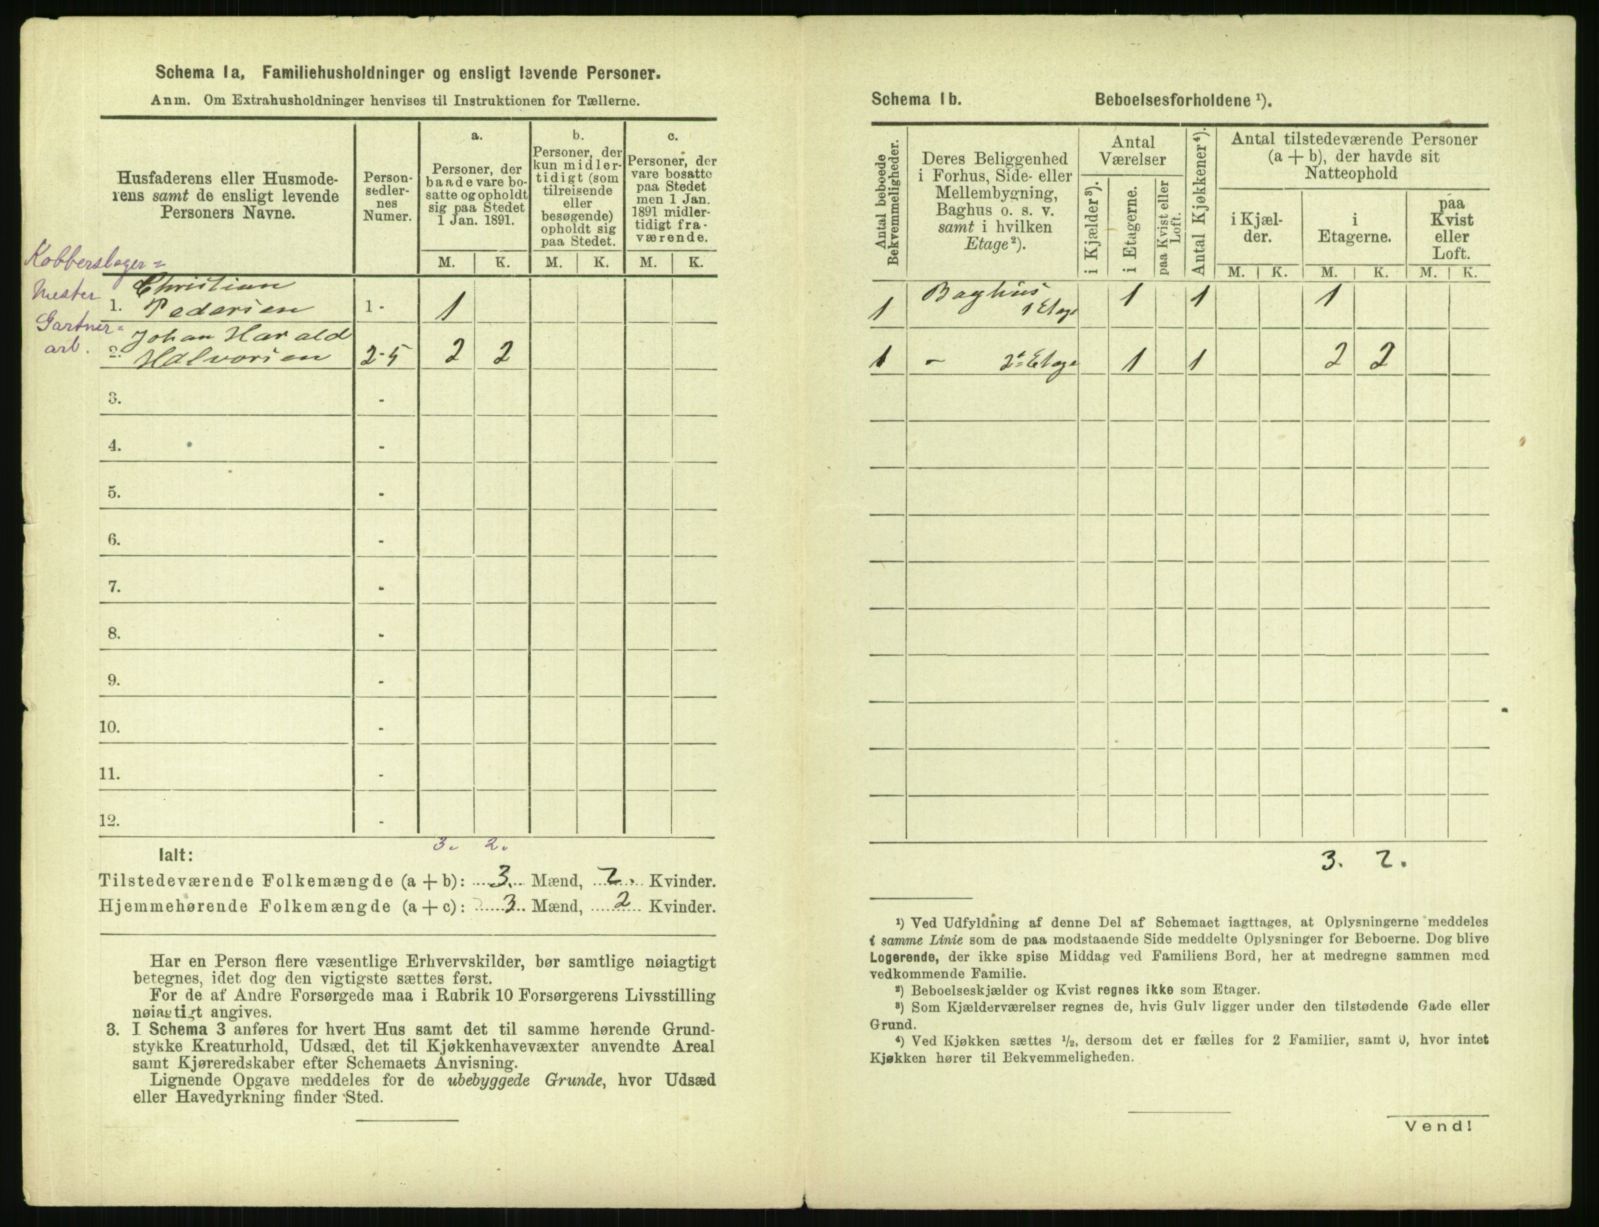 Schema Ia, Familiehusholdninger og ensligt levende Personer.
Anm. Om Extrahusholdninger henvises til Instruktionen for Tællerne.
Husfaderens eller Husmode-
rens samt de ensligt levende
Personers Navne.
Person-
sedler-
nes
Numer.
a.
Personer, der
baade vare bo-
satte og opholdt
sig paa Stedet
1 Jan. 1891.
b.
Personer, der
kun midler-
tidigt (som
tilreisende
eller
besøgende)
opholdt sig
paa Stedet.
c.
Personer, der
vare bosatte
paa Stedet
men 1 Jan.
1891 midler-
tidigt fra-
værende.
M. K. M. K. M. K.
Kobberslager=
mester
1. Christian
Pedersen 1- 1
Gartner=
arb.
2. Johan Harald
Halvorsen 2-5 2 2
3. -
4. -
5. -
6. -
7. -
8. -
9. -
10. -
11. -
12. -
3. 2.
Ialt:
Tilstedeværende Folkemængde (a + b): 3. Mænd, 2. Kvinder.
Hjemmehørende Folkemængde (a + c): 3 Mænd, 2 Kvinder.
Har en Person flere væsentlige Erhvervskilder, bør samtlige nøiagtigt
betegnes, idet dog den vigtigste sættes først.
For de af Andre Forsørgede maa i Rubrik 10 Forsørgerens Livsstilling
nøiagtigt angives.
3. I Schema 3 anføres for hvert Hus samt det til samme hørende Grund-
stykke Kreaturhold, Udsæd, det til Kjøkkenhavevæxter anvendte Areal
samt Kjøreredskaber efter Schemaets Anvisning.
Lignende Opgave meddeles for de ubebyggede Grunde, hvor Udsæd
eller Havedyrkning finder Sted.
Schema Ib. Beboelsesforholdene ¹).
Antal beboede
Bekvemmeligheder.
Deres Beliggenhed
i Forhus, Side- eller
Mellembygning,
Baghus o. s. v.
samt i hvilken
Etage²).
Antal
Værelser
i Kjælder³).
i Etagerne.
paa Kvist eller
Loft.
Antal Kjøkkener⁴).
Antal tilstedeværende Personer
(a + b), der havde sit
Natteophold
i Kjæl-
der.
i
Etagerne.
paa
Kvist
eller
Loft.
M. K. M. K. M. K.
1 Baghus
1 Etage 1 1 1
1 - 2' Etage 1 1 2 2
3. 2.
¹) Ved Udfyldning af denne Del af Schemaet iagttages, at Oplysningerne meddeles
i samme Linie som de paa modstaaende Side meddelte Oplysninger for Beboerne. Dog blive
Logerende, der ikke spise Middag ved Familiens Bord, her at medregne sammen med
vedkommende Familie.
²) Beboelseskjælder og Kvist regnes ikke som Etager.
³) Som Kjælderværelser regnes de, hvis Gulv ligger under den tilstødende Gade eller
Grund.
⁴) Ved Kjøkken sættes ¹/₂, dersom det er fælles for 2 Familier, samt 0, hvor intet
Kjøkken hører til Bekvemmeligheden.
Vend!